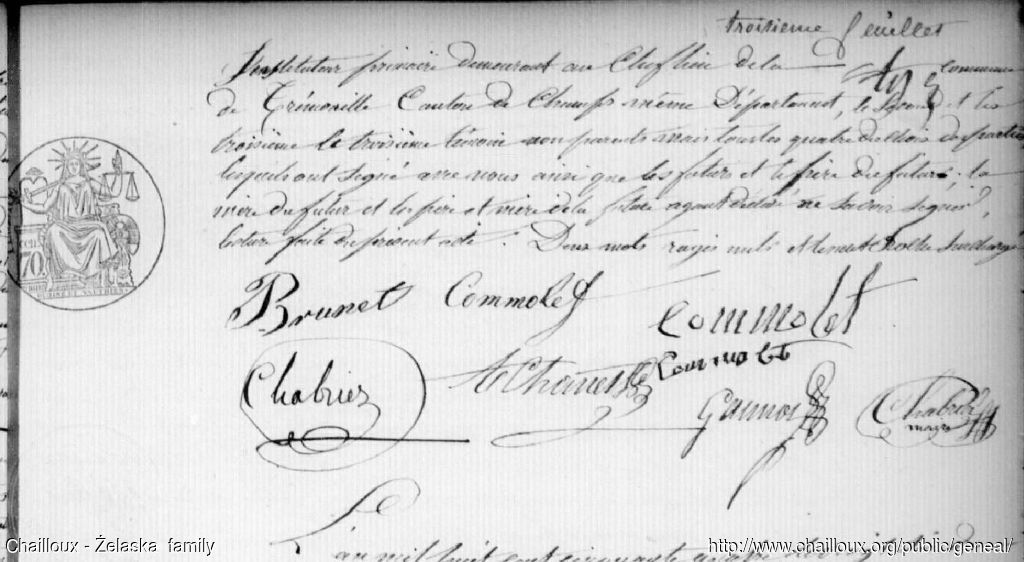 troisieme feuillet
Instituteur primaire demeurant au Cheflieu de la commune
de Trémouille Canton de Champs même Département, le second et les
troisième le troisième témoin non parents mais tous les quatre du choix des parties
lesquels ont signé avec nous ainsi que les futurs et le frère du futur; la
mère du futur et les père et mère de la future ayant déclaré ne savoir signer,
lecture faite du présent acte. Deux mots rayés nuls
Brunet Commolet
Commolet
Commolet
Chabrier
Chanest
Gaumos
Chabrier
maire
Le
an mil huit cent cinquante quatre
cen
70
Chailloux - Żelaska family
http://www.chailloux.org/public/geneal/